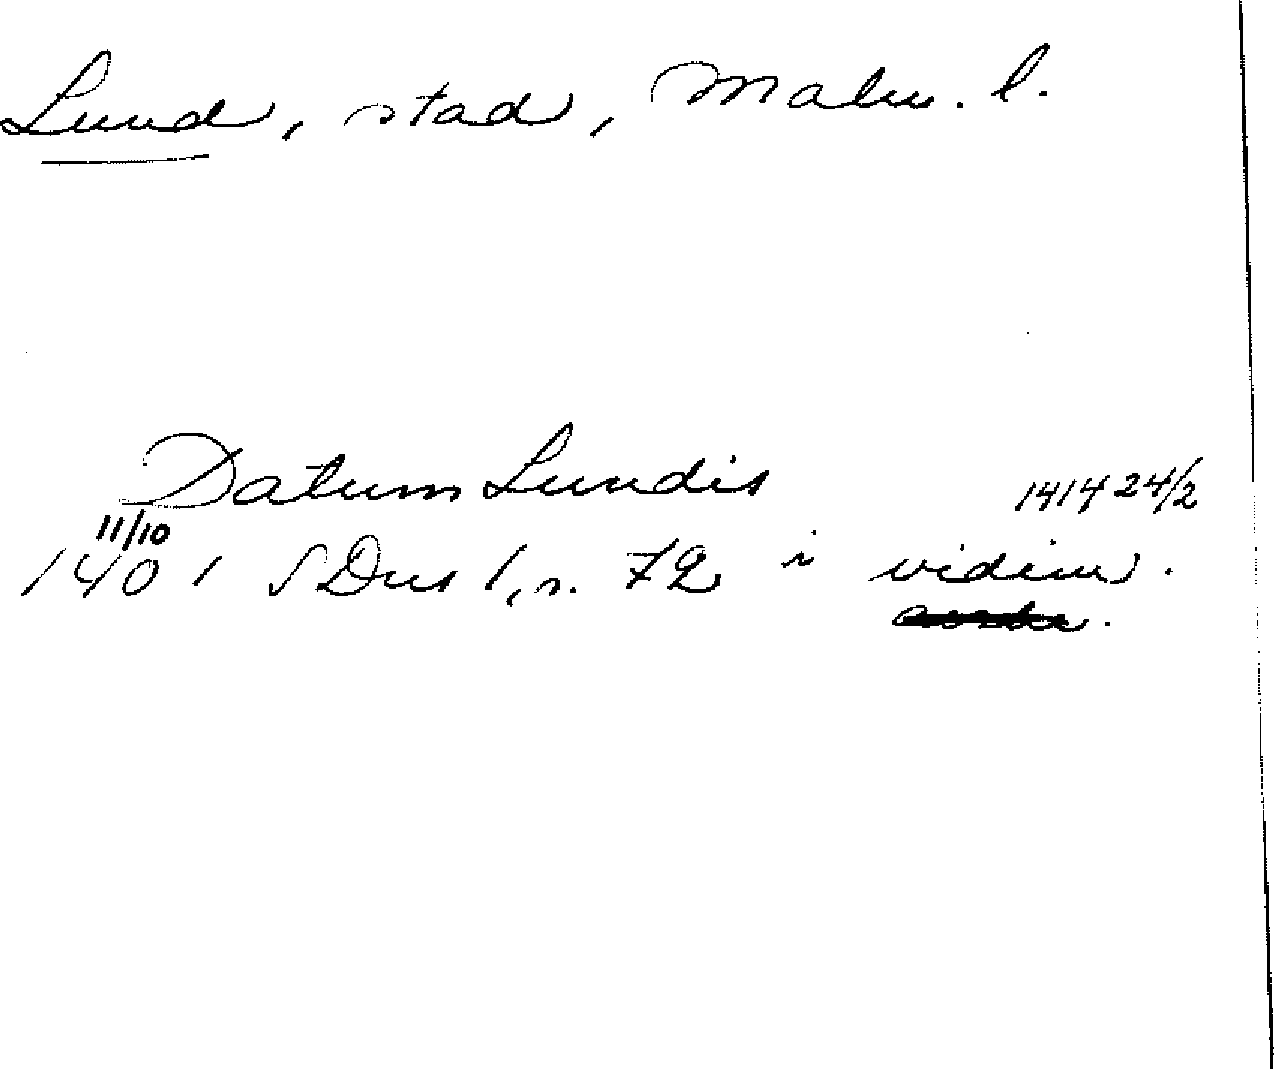 Lund, stad, Malm. l.
Datum Lundis 1414 24/2
11/10
1401 SDns 1, s. 72 i vidim.